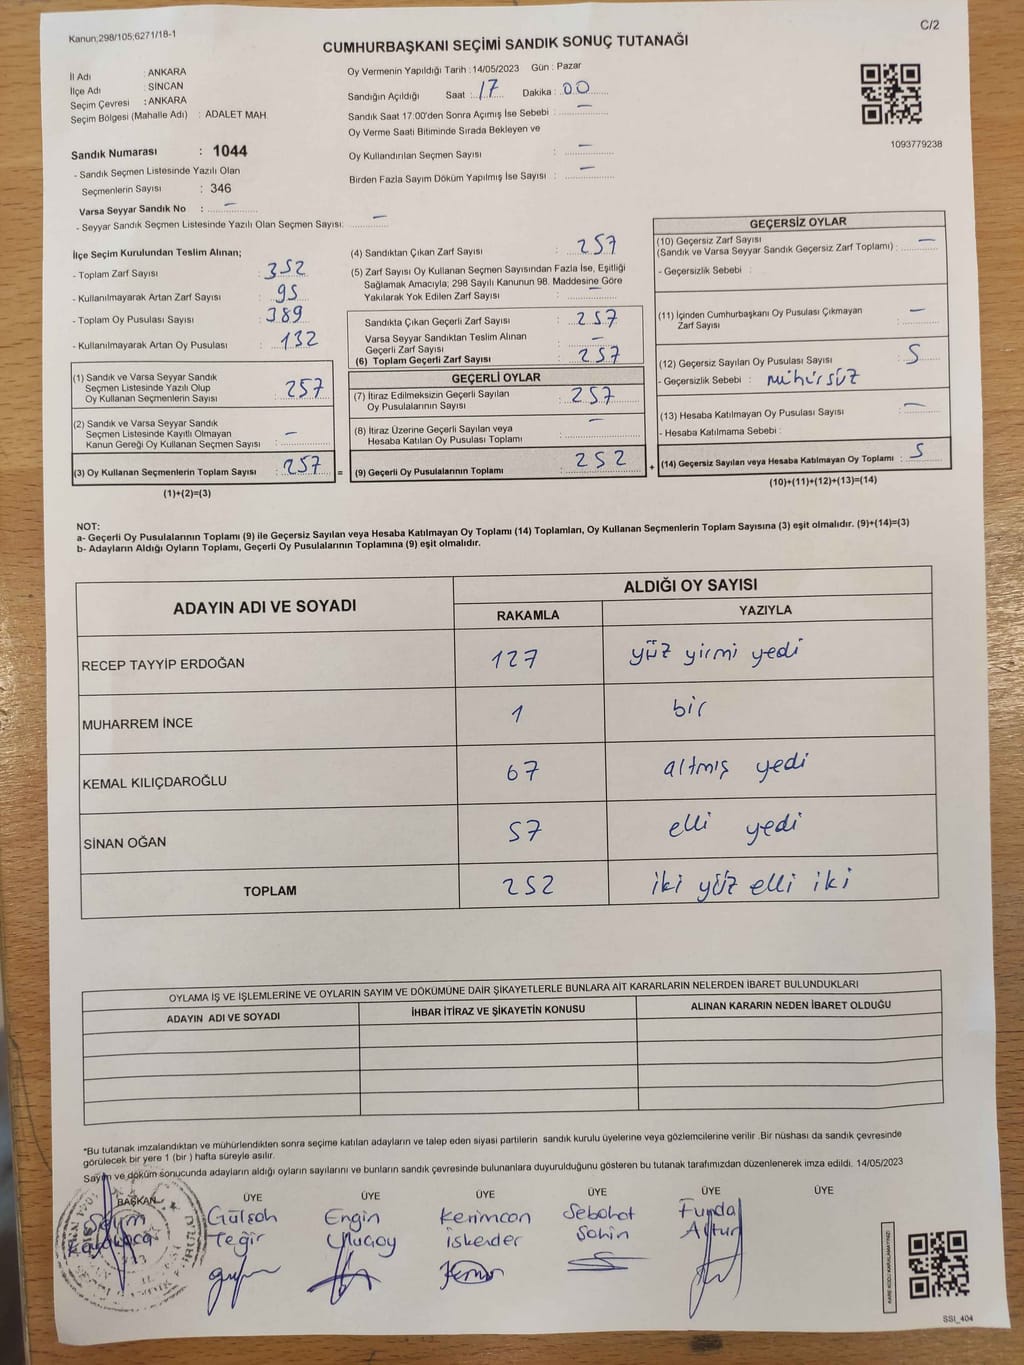 Kanun;298/105;6271/18-1
C/2
CUMHURBAŞKANI SEÇİMİ SANDIK SONUÇ TUTANAĞI
İl Adı : ANKARA
İlçe Adı : SİNCAN
Seçim Çevresi : ANKARA
Seçim Bölgesi (Mahalle Adı) : ADALET MAH.
Oy Vermenin Yapıldığı Tarih : 14/05/2023 Gün : Pazar
Sandığın Açıldığı Saat : 17 Dakika : 00
Sandık Saat 17:00'den Sonra Açımış İse Sebebi : —
Oy Verme Saati Bitiminde Sırada Bekleyen ve
Oy Kullandırılan Seçmen Sayısı : —
Birden Fazla Sayım Döküm Yapılmış İse Sayısı : —
1093779238
Sandık Numarası : 1044
- Sandık Seçmen Listesinde Yazılı Olan
Seçmenlerin Sayısı : 346
Varsa Seyyar Sandık No : —
- Seyyar Sandık Seçmen Listesinde Yazılı Olan Seçmen Sayısı: —
İlçe Seçim Kurulundan Teslim Alınan;
- Toplam Zarf Sayısı : 352
- Kullanılmayarak Artan Zarf Sayısı : 95
- Toplam Oy Pusulası Sayısı : 389
- Kullanılmayarak Artan Oy Pusulası : 132
(1) Sandık ve Varsa Seyyar Sandık
Seçmen Listesinde Yazılı Olup
Oy Kullanan Seçmenlerin Sayısı : 257
(2) Sandık ve Varsa Seyyar Sandık
Seçmen Listesinde Kayıtlı Olmayan
Kanun Gereği Oy Kullanan Seçmen Sayısı : —
(3) Oy Kullanan Seçmenlerin Toplam Sayısı : 257
(1)+(2)=(3)
(4) Sandıktan Çıkan Zarf Sayısı : 257
(5) Zarf Sayısı Oy Kullanan Seçmen Sayısından Fazla İse, Eşitliği
Sağlamak Amacıyla; 298 Sayılı Kanunun 98. Maddesine Göre
Yakılarak Yok Edilen Zarf Sayısı : —
Sandıkta Çıkan Geçerli Zarf Sayısı : 257
Varsa Seyyar Sandıktan Teslim Alınan
Geçerli Zarf Sayısı : —
(6) Toplam Geçerli Zarf Sayısı : 257
GEÇERLİ OYLAR
(7) İtiraz Edilmeksizin Geçerli Sayılan
Oy Pusulalarının Sayısı : 257
(8) İtiraz Üzerine Geçerli Sayılan veya
Hesaba Katılan Oy Pusulası Toplamı : —
= (9) Geçerli Oy Pusulalarının Toplamı : 252
GEÇERSİZ OYLAR
(10) Geçersiz Zarf Sayısı
(Sandık ve Varsa Seyyar Sandık Geçersiz Zarf Toplamı) : —
- Geçersizlik Sebebi :
(11) İçinden Cumhurbaşkanı Oy Pusulası Çıkmayan
Zarf Sayısı : —
(12) Geçersiz Sayılan Oy Pusulası Sayısı : 5
- Geçersizlik Sebebi : mühürsüz
(13) Hesaba Katılmayan Oy Pusulası Sayısı : —
- Hesaba Katılmama Sebebi :
+ (14) Geçersiz Sayılan veya Hesaba Katılmayan Oy Toplamı : 5
(10)+(11)+(12)+(13)=(14)
NOT:
a- Geçerli Oy Pusulalarının Toplamı (9) ile Geçersiz Sayılan veya Hesaba Katılmayan Oy Toplamı (14) Toplamları, Oy Kullanan Seçmenlerin Toplam Sayısına (3) eşit olmalıdır. (9)+(14)=(3)
b- Adayların Aldığı Oyların Toplamı, Geçerli Oy Pusulalarının Toplamına (9) eşit olmalıdır.
ADAYIN ADI VE SOYADI
ALDIĞI OY SAYISI
RAKAMLA YAZIYLA
RECEP TAYYİP ERDOĞAN 127 yüz yirmi yedi
MUHARREM İNCE 1 bir
KEMAL KILIÇDAROĞLU 67 altmış yedi
SİNAN OĞAN 57 elli yedi
TOPLAM 252 iki yüz elli iki
OYLAMA İŞ VE İŞLEMLERİNE VE OYLARIN SAYIM VE DÖKÜMÜNE DAİR ŞİKAYETLERLE BUNLARA AİT KARARLARIN NELERDEN İBARET BULUNDUKLARI
ADAYIN ADI VE SOYADI İHBAR İTİRAZ VE ŞİKAYETİN KONUSU ALINAN KARARIN NEDEN İBARET OLDUĞU
*Bu tutanak imzalandıktan ve mühürlendikten sonra seçime katılan adayların ve talep eden siyasi partilerin sandık kurulu üyelerine veya gözlemcilerine verilir .Bir nüshası da sandık çevresinde
görülecek bir yere 1 (bir ) hafta süreyle asılır.
Sayım ve döküm sonucunda adayların aldığı oyların sayılarını ve bunların sandık çevresinde bulunanlara duyurulduğunu gösteren bu tutanak tarafımızdan düzenlenerek imza edildi. 14/05/2023
BAŞKAN ÜYE ÜYE ÜYE ÜYE ÜYE ÜYE
Selim Gülşah Engin Kerimcan Sebahat Funda
Teğir Ulusoy İskender Şahin Altun
KARE KODU KARALAMAYINIZ!
SSI_404